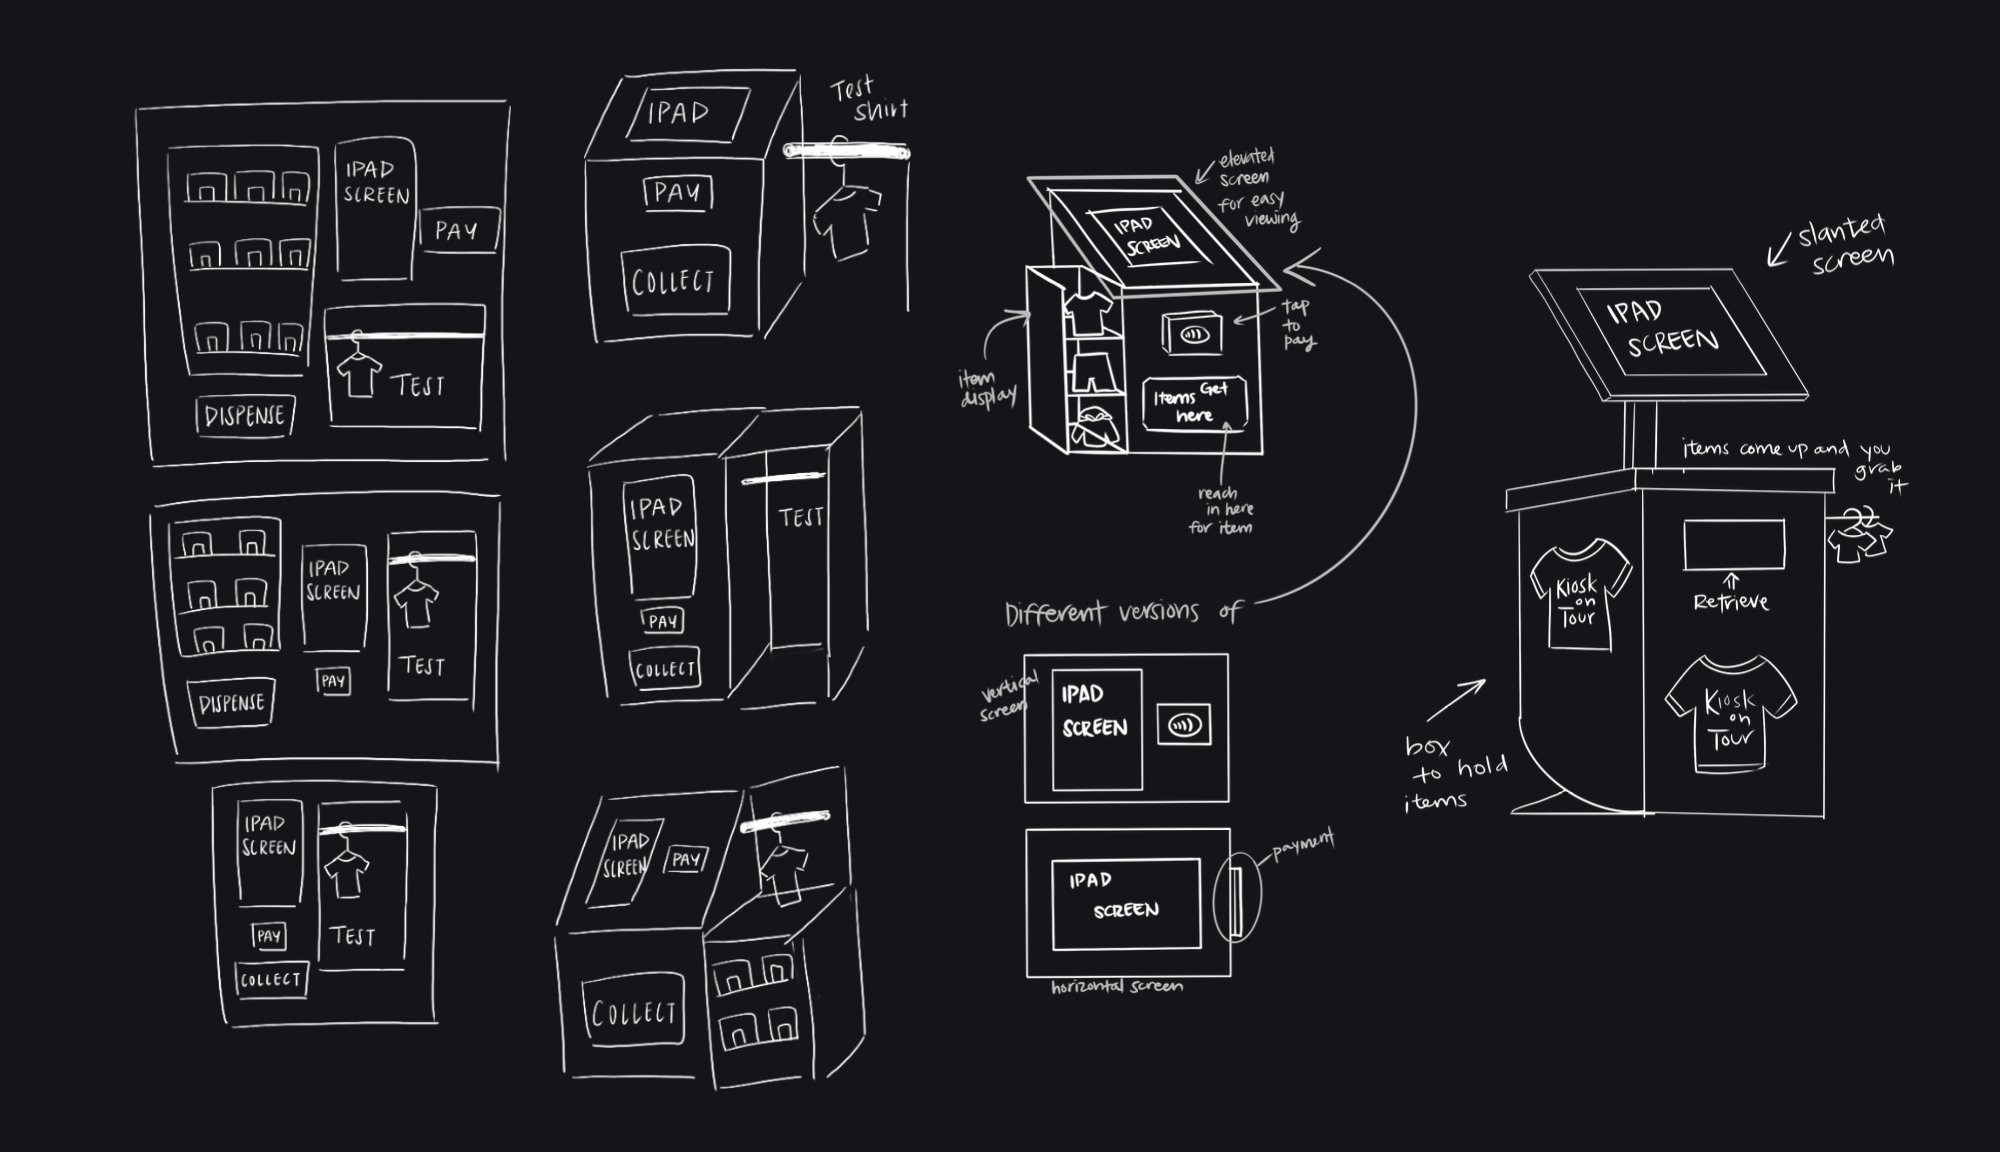 IPAD
SCREEN
PAY
TEST
DISPENSE
IPAD
SCREEN
PAY
TEST
DISPENSE
IPAD
SCREEN
PAY
COLLECT
TEST
IPAD
PAY
COLLECT
Test
shirt
IPAD
SCREEN
PAY
COLLECT
TEST
IPAD
SCREEN
PAY
COLLECT
elevated
screen
for easy
viewing
IPAD
SCREEN
tap
to
pay
item
display
Items Get
here
reach
in here
for item
Different versions of
vertical
screen
IPAD
SCREEN
payment
IPAD
SCREEN
horizontal screen
slanted
screen
IPAD
SCREEN
items come up and you
grab
it
Kiosk
on
Tour
Retrieve
Kiosk
on
Tour
box
to hold
items